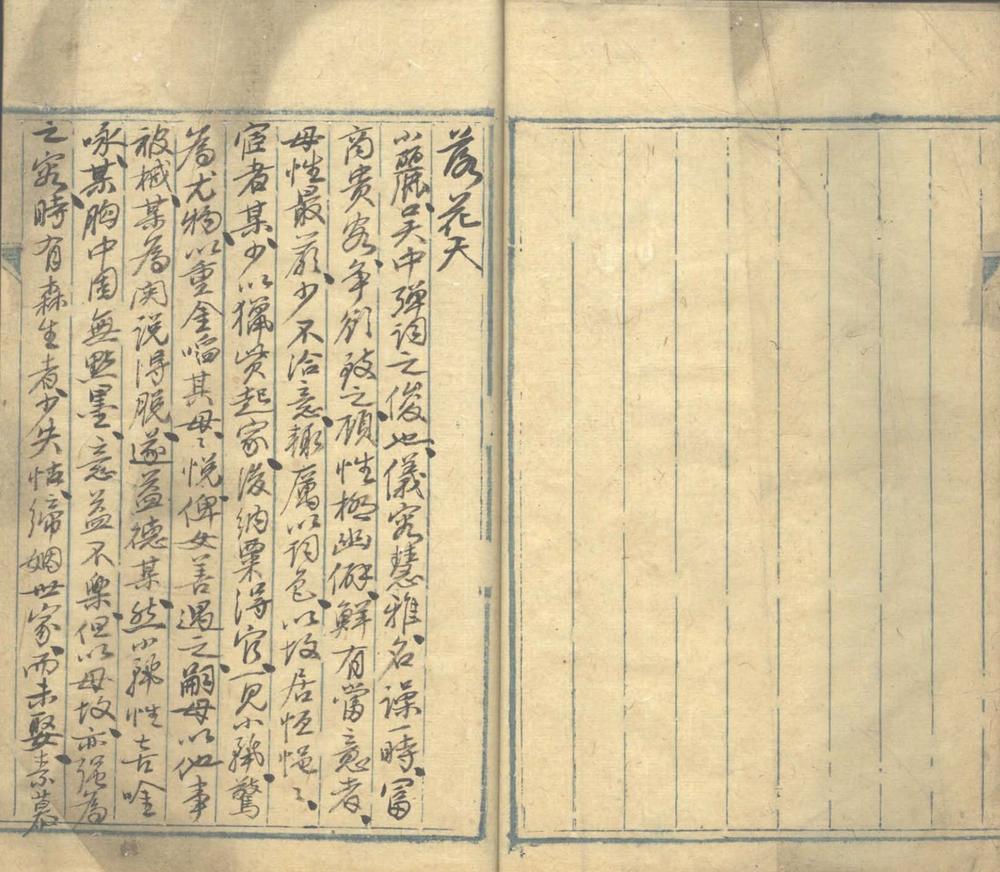 落花天
小麗吳中彈詞之俊也儀容慧雅名譟一時富
商貴客爭欲致之頋性極幽僻鮮有當意者
母性最嚴少不洽意輒厲以詞色以故居恒悒〻
宦者某少以獵貲起家後納粟得官一見小驚
為尤物以重金啗其母〻悅俾女善遇之嗣母以他事
被械某為関說得脫遂益德某然小性吉唫
咏某胸中固無點墨意益不樂但以母故亦强為
之容時有森生者少失怙締姻世家而未娶素慕